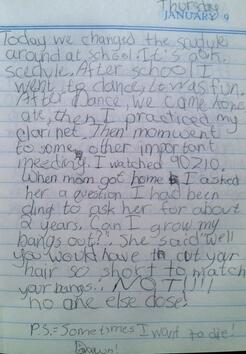 Thursday
JANUARY 9
Today we changed the
around at school. It's a ok
scedule. After school I
went to dance, it was fun.
After Dance, we came home
ate, then I practiced my
clarinet. Then mom went
to some other important
meeting. I watched 90210.
When mom got home I asked
her a question I had been
ding to ask her for about
2 years. Can I grow my
bangs out!. She said well
you would have to cut your
hair so short to match
your bangs.. NOT!!!!
no one else dose!
P.S. = Sometimes I want to die!